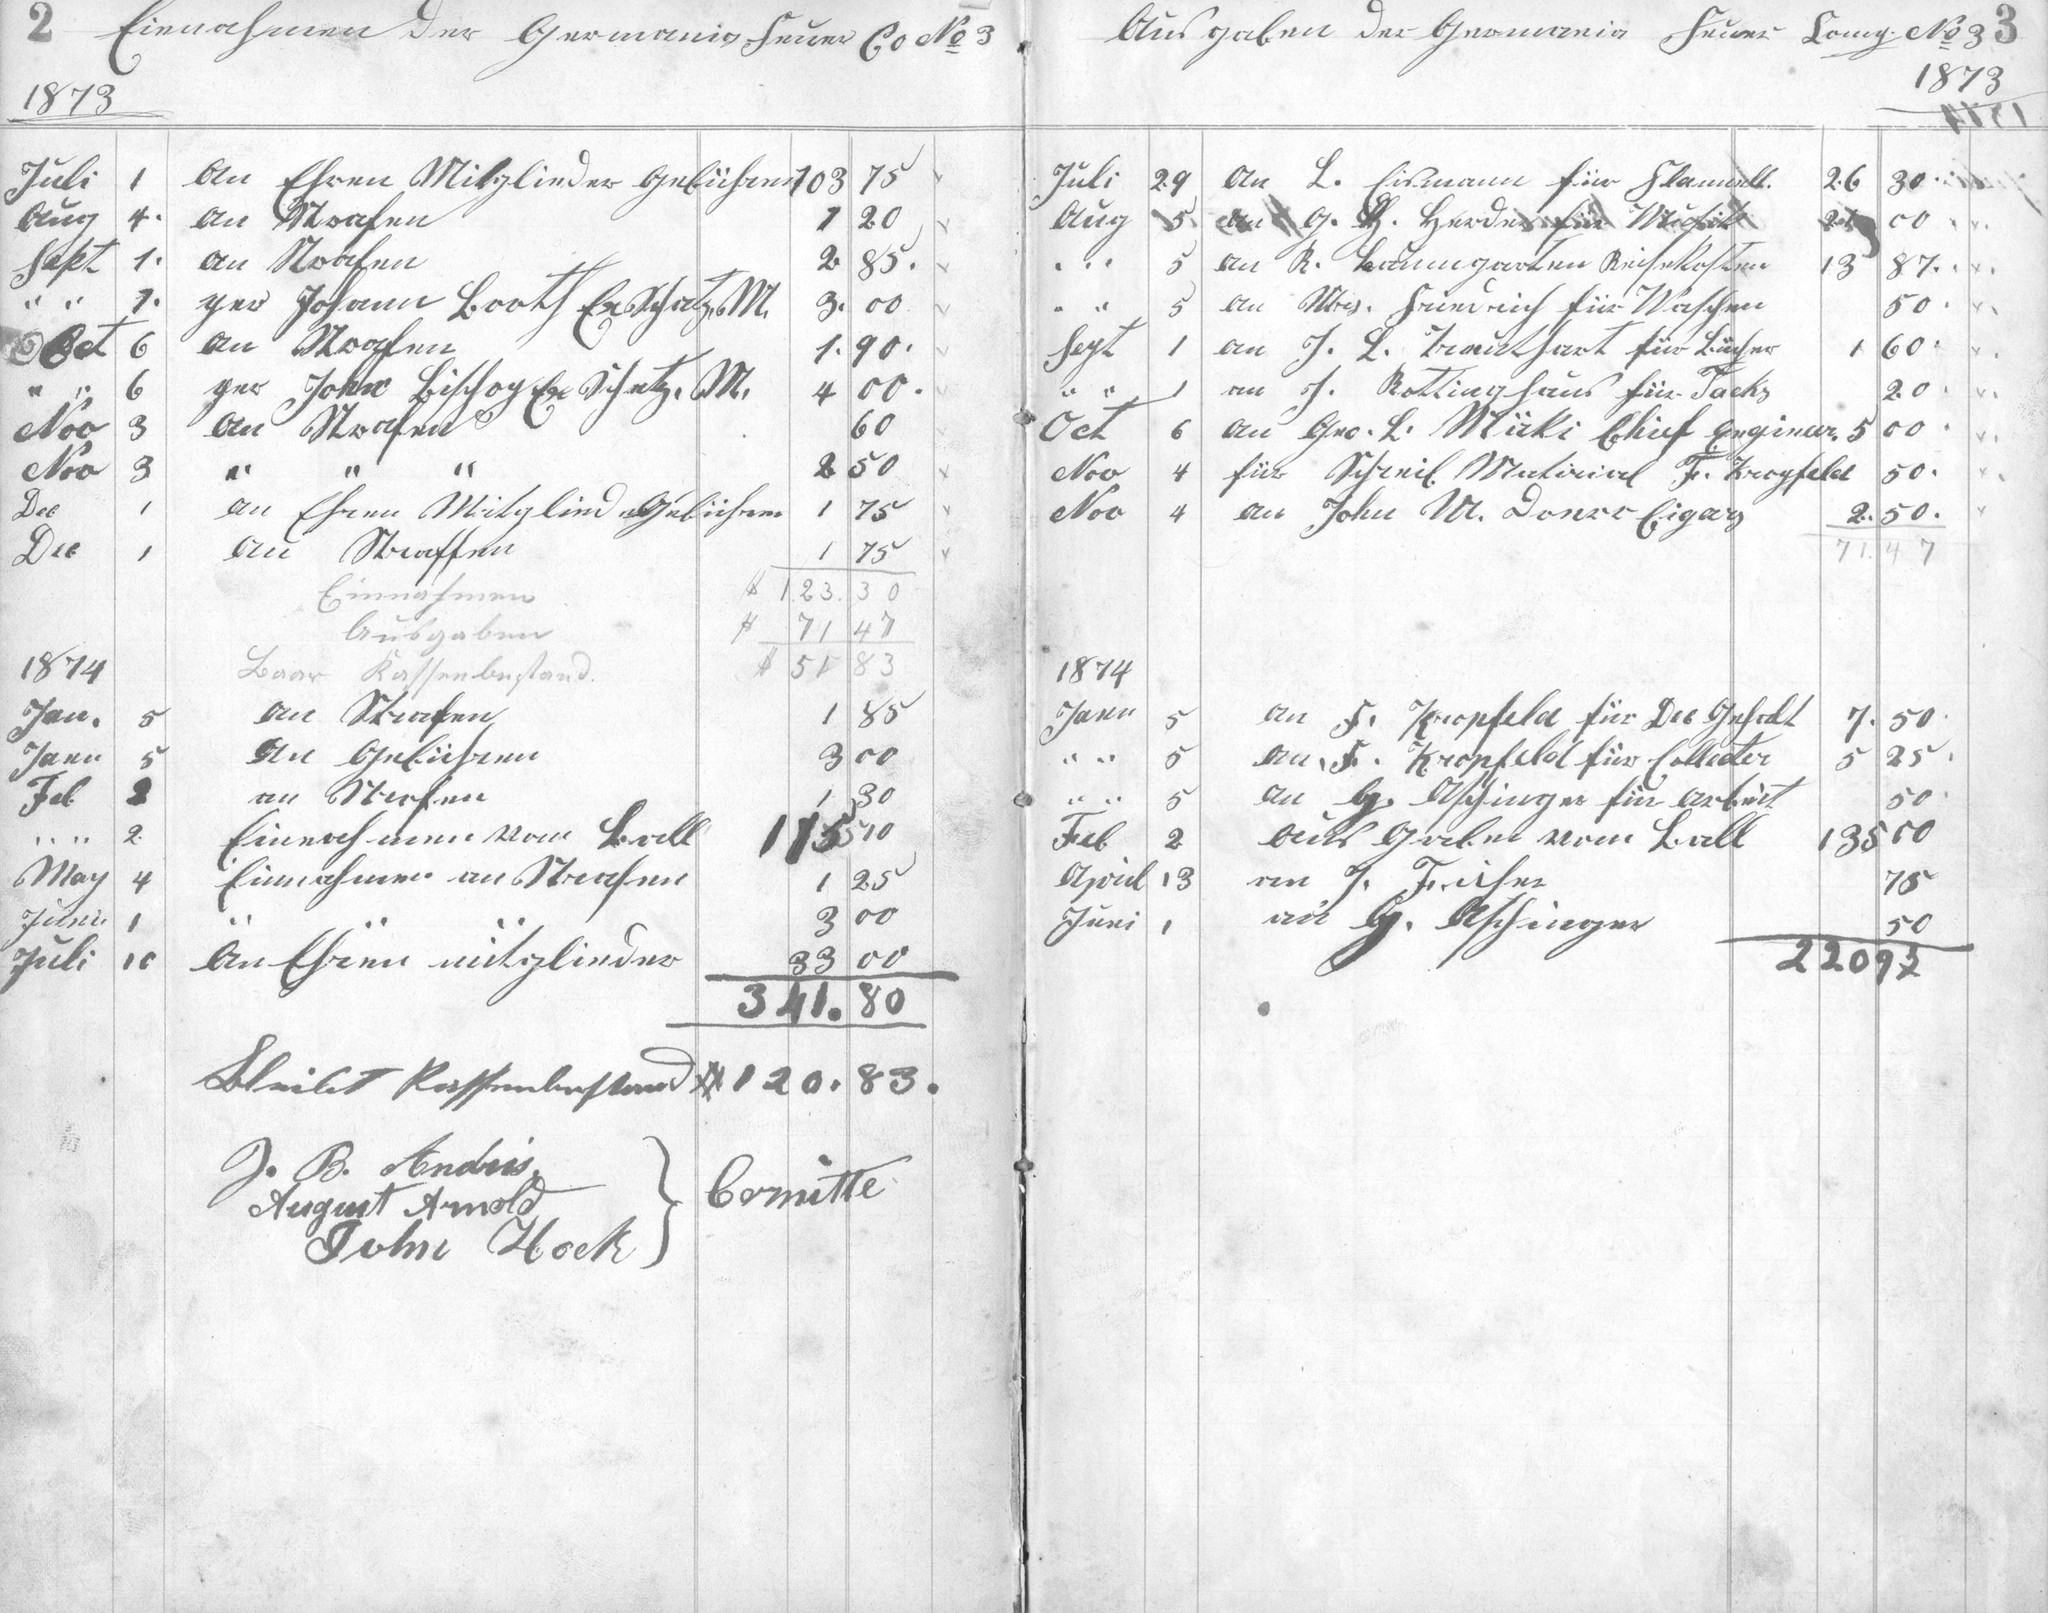 2 Einnahmen der Germania Feuer Co No 3
1873
Juli 1 An Ehren Mitglieder Gebühren 103 75
Aug 4. an Strafen 1 20
Sept 1. an Strafen 2 85.
" " 1. per Johann Booth Ex Schatz. M. 3. 00
Oct 6 an Strafen 1. 90.
" " 6 per John Bischop Ex Schatz. M. 4 00.
Nov 3 an Strafen 60
Nov 3 " " " 2 50
Dec 1 an Ehren Mitglieder Gebühren 1 75
Dec 1 an Straffen 1 75
Einnahmen $ 123. 30
Ausgaben $ 71 47
1874 Baar Kassenbestand. $ 51 83
Jan. 5 an Strafen 1 85
Jann 5 an Gebühren 3 00
Feb 2 an Strafen 1 30
" " 2 Einnahmen vom Ball 175 10
May 4 Einnahmen an Strafen 1 25
Juni 1 " " 3 00
Juli 10 An Ehren mitglieder 33 00
341. 80
Bleibt Kassenbestand $ 120. 83.
J. B. Andris
August Arnold
John Hock
Comitte
Ausgaben der Germania Feuer Comp. No 3 3
1873
Juli 29 an L. Eismann für Flanell. 26 30.
Aug 5 an G. H. Herder für Musik 21 00
" " 5 an R. Baumgarten Reisekosten 13 87.
" " 5 an Mrs. Friedrich für Waschen 50
Sept 1 an J. L. für Bücher 1 60
" " 1 an J. Rottinghaus für Tacks 20
Oct 6 an Geo. L. Mücki Chief Engineer. 5 00
Nov 4 für Schreib Material F. Kropfeld 50.
Nov 4 an John M. Cigars 2. 50.
71. 47
1874
Jann 5 an F. Kropfeld für Dec Gehalt 7. 50
" " 5 an F. Kropfeld für Collecter 5 25
" " 5 an G. Aschinger für Arbeit 50
Feb 2 Aus Gaben vom Ball 135 00
April 13 an J. 75
Juni 1 an G. Aschinger 50
220 97